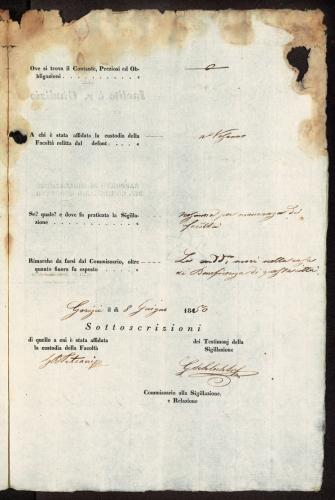 Ove si trova il Contante, Preziosi ed Ob-
bligazioni . . . . . . . . . . . . «
A chi è stata affidata la custodia della
Facoltà relitta dal defont. . . . . «
a Nessuno
Se? quale? e dove fu praticata la Sigilla-
zione . . . . . . . . . . . . . . «
nessuna per mancanza di
facoltà
Rimarche da farsi dal Commissario, oltre
quanto finora fu esposto . . . . . «
di
Gorizia li 8 Giugno 1850
Sottoscrizioni
di quello a cui è stata affidata
la custodia della Facoltà
dei Testimonj della
Sigillazione
Commissario alla Sigillazione,
e Relazione